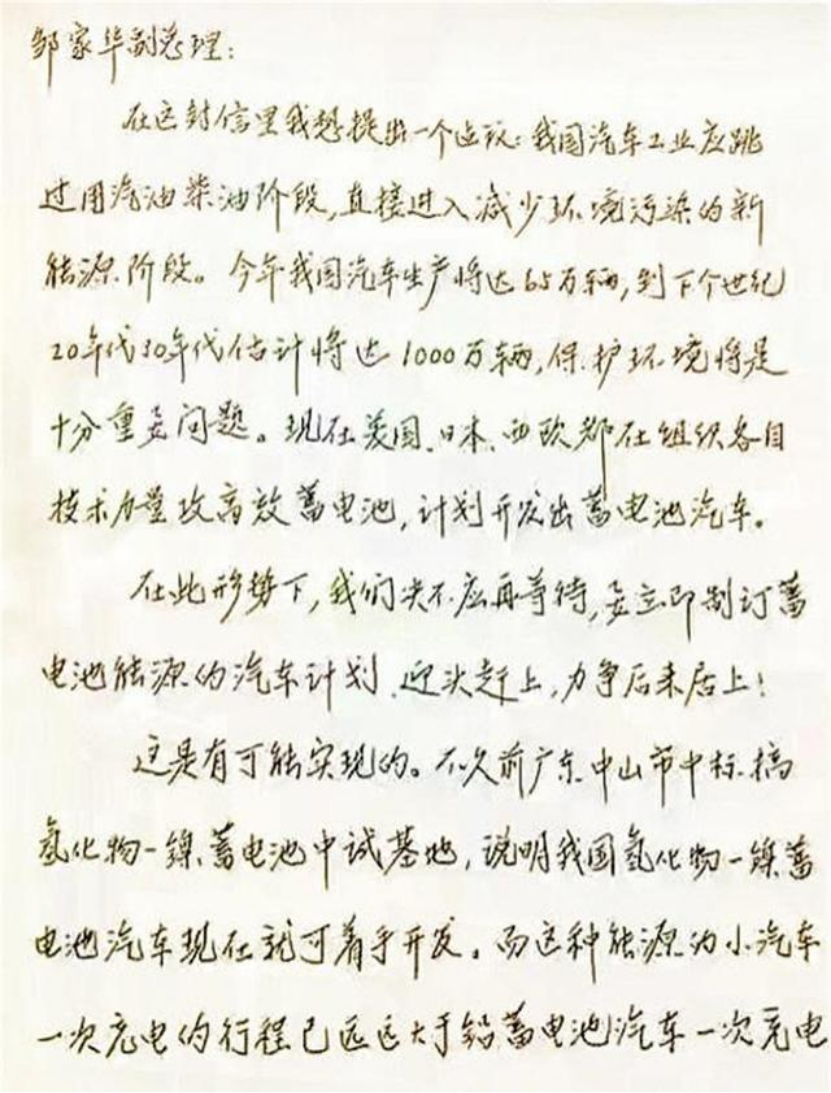 邹家华副总理：
在这封信里我想提出一个建议：我国汽车工业应跳
过用汽油柴油阶段，直接进入减少环境污染的新
能源阶段。今年我国汽车生产将达65万辆，到下个世纪
20年代30年代估计将达1000万辆，保护环境将是
十分重要问题。现在美国、日本、西欧都在组织各自
技术力量攻高效蓄电池，计划开发出蓄电池汽车。
在此形势下，我们决不应再等待，要立即制订蓄
电池能源的汽车计划、迎头赶上，力争后来居上！
这是有可能实现的。不久前广东中山市中标搞
氢化物-镍蓄电池中试基地，说明我国氢化物-镍蓄
电池汽车现在就可着手开发。而这种能源的小汽车
一次充电的行程已远远大于铅蓄电池汽车一次充电